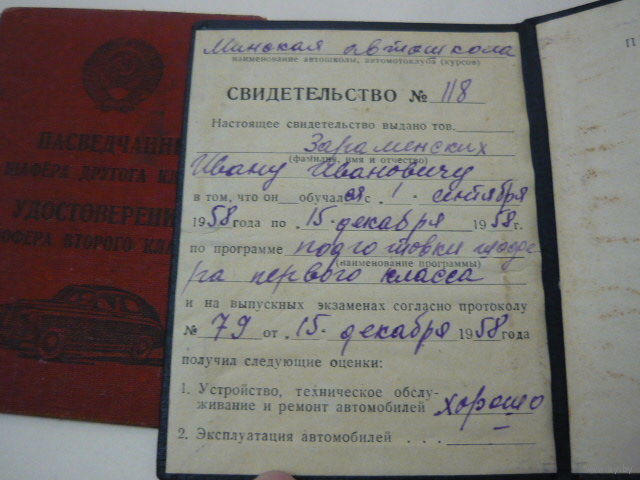 ПАСВЕДЧАНН
ШАФЁРА ДРУГОГА КЛА
УДОСТОВЕРЕНИ
ШОФЕРА ВТОРОГО КЛА
Минская автошкола
наименование автошколы, автомотоклуба (курсов)
СВИДЕТЕЛЬСТВО № 118
Настоящее свидетельство выдано тов.
Зараменских
(фамилия, имя и отчество)
Ивану Ивановичу
в том, что он обучался с 1 - сентября
1958 года по 15 - декабря 1958 г.
по программе подготовки шофе-
(наименование программы)
ра первого класса
и на выпускных экзаменах согласно протоколу
№ 79 от 15 - декабря 1958 года
получил следующие оценки:
1. Устройство, техническое обслу-
живание и ремонт автомобилей хорошо
2. Эксплуатация автомобилей . . .
П